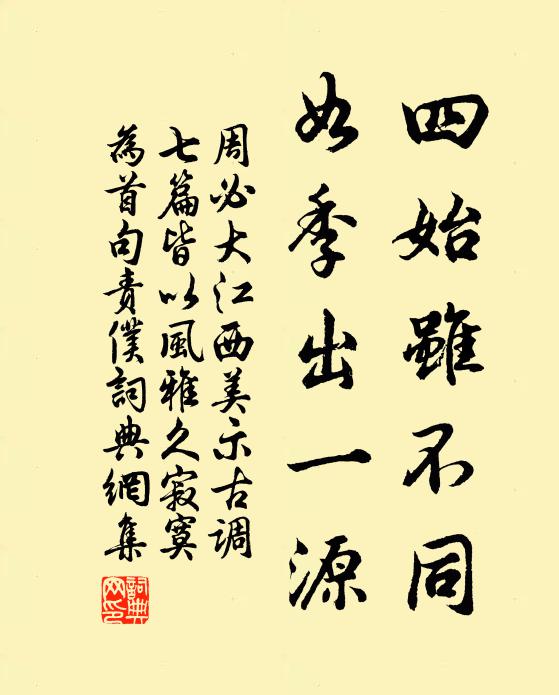 四始雖不同
如季出一源
周必大江西美示古調
七篇皆以風雅久寂寞
為首句責僕詞典網集
詞典
网印